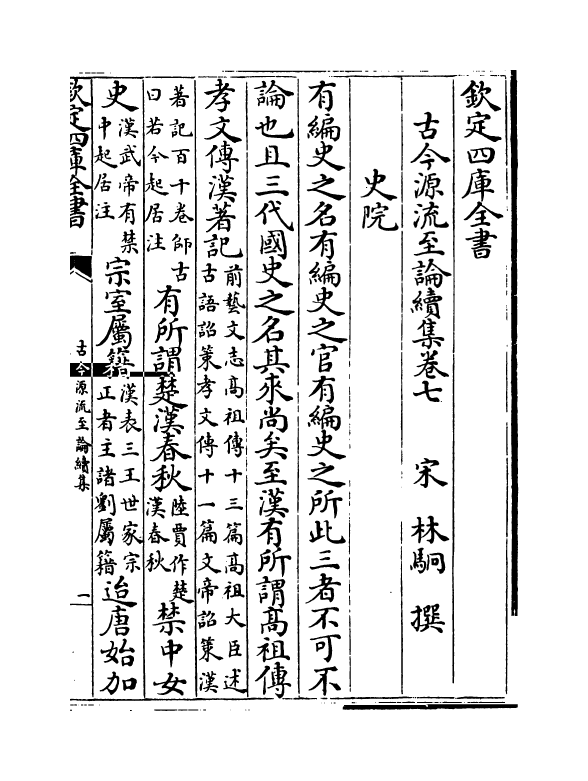 欽定四庫全書
古今源流至論續集卷七 宋 林駉 撰
史院
有編史之名有編史之官有編史之所此三者不可不
論也且三代國史之名其來尚矣至漢有所謂髙祖傳
孝文傳漢著記前藝文志髙祖傳十三篇髙祖大臣述古語詔策孝文傳十一篇文帝詔策漢
著記百十卷師古曰若今起居注有所謂楚漢春秋陸賈作楚漢春秋禁中女
史漢武帝有禁中起居注宗室屬籍漢表三王世家宗正者主諸劉屬籍迨唐始加
欽定四庫全書 古今源流至論續集 一